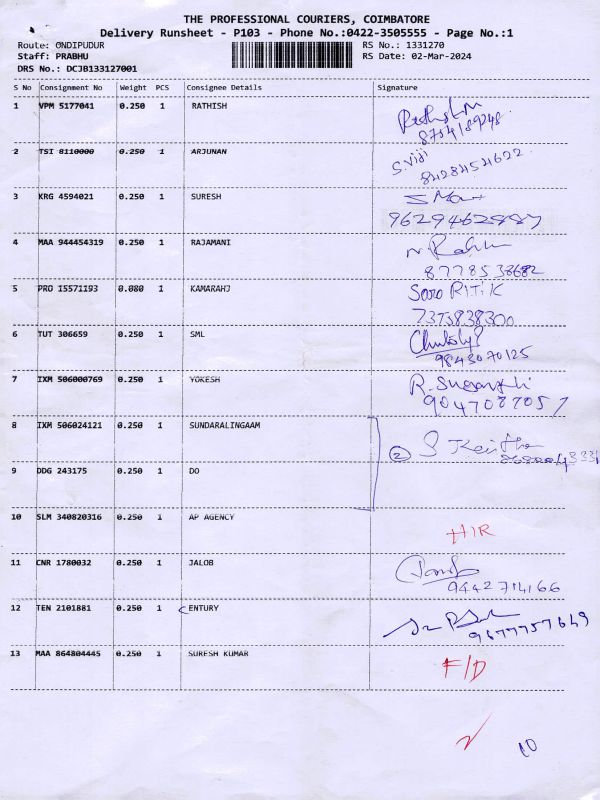 THE PROFESSIONAL COURIERS, COIMBATORE
Delivery Runsheet - P103 - Phone No.:0422-3505555 - Page No.:1
Route: ONDIPUDUR RS No.: 1331270
Staff: PRABHU RS Date: 02-Mar-2024
DRS No.: DCJB133127001
S No Consignment No Weight PCS Consignee Details Signature
1 VPM 5177041 0.250 1 RATHISH
2 TSI 8110000 0.250 1 ARJUNAN S.Viji
8428454622
3 KRG 4594021 0.250 1 SURESH
9629462887
4 MAA 944454319 0.250 1 RAJAMANI
8778538682
5 PRO 15571193 0.080 1 KAMARAHJ
7373838300
6 TUT 306659 0.250 1 SML
9843070125
7 IXM 506000769 0.250 1 YOKESH
9047087057
8 IXM 506024121 0.250 1 SUNDARALINGAAM
2
9 DDG 243175 0.250 1 DO
10 SLM 340820316 0.250 1 AP AGENCY
11 CNR 1780032 0.250 1 JALOB
9442714166
12 TEN 2101881 0.250 1 CENTURY
9677757649
13 MAA 864804445 0.250 1 SURESH KUMAR F/D
10